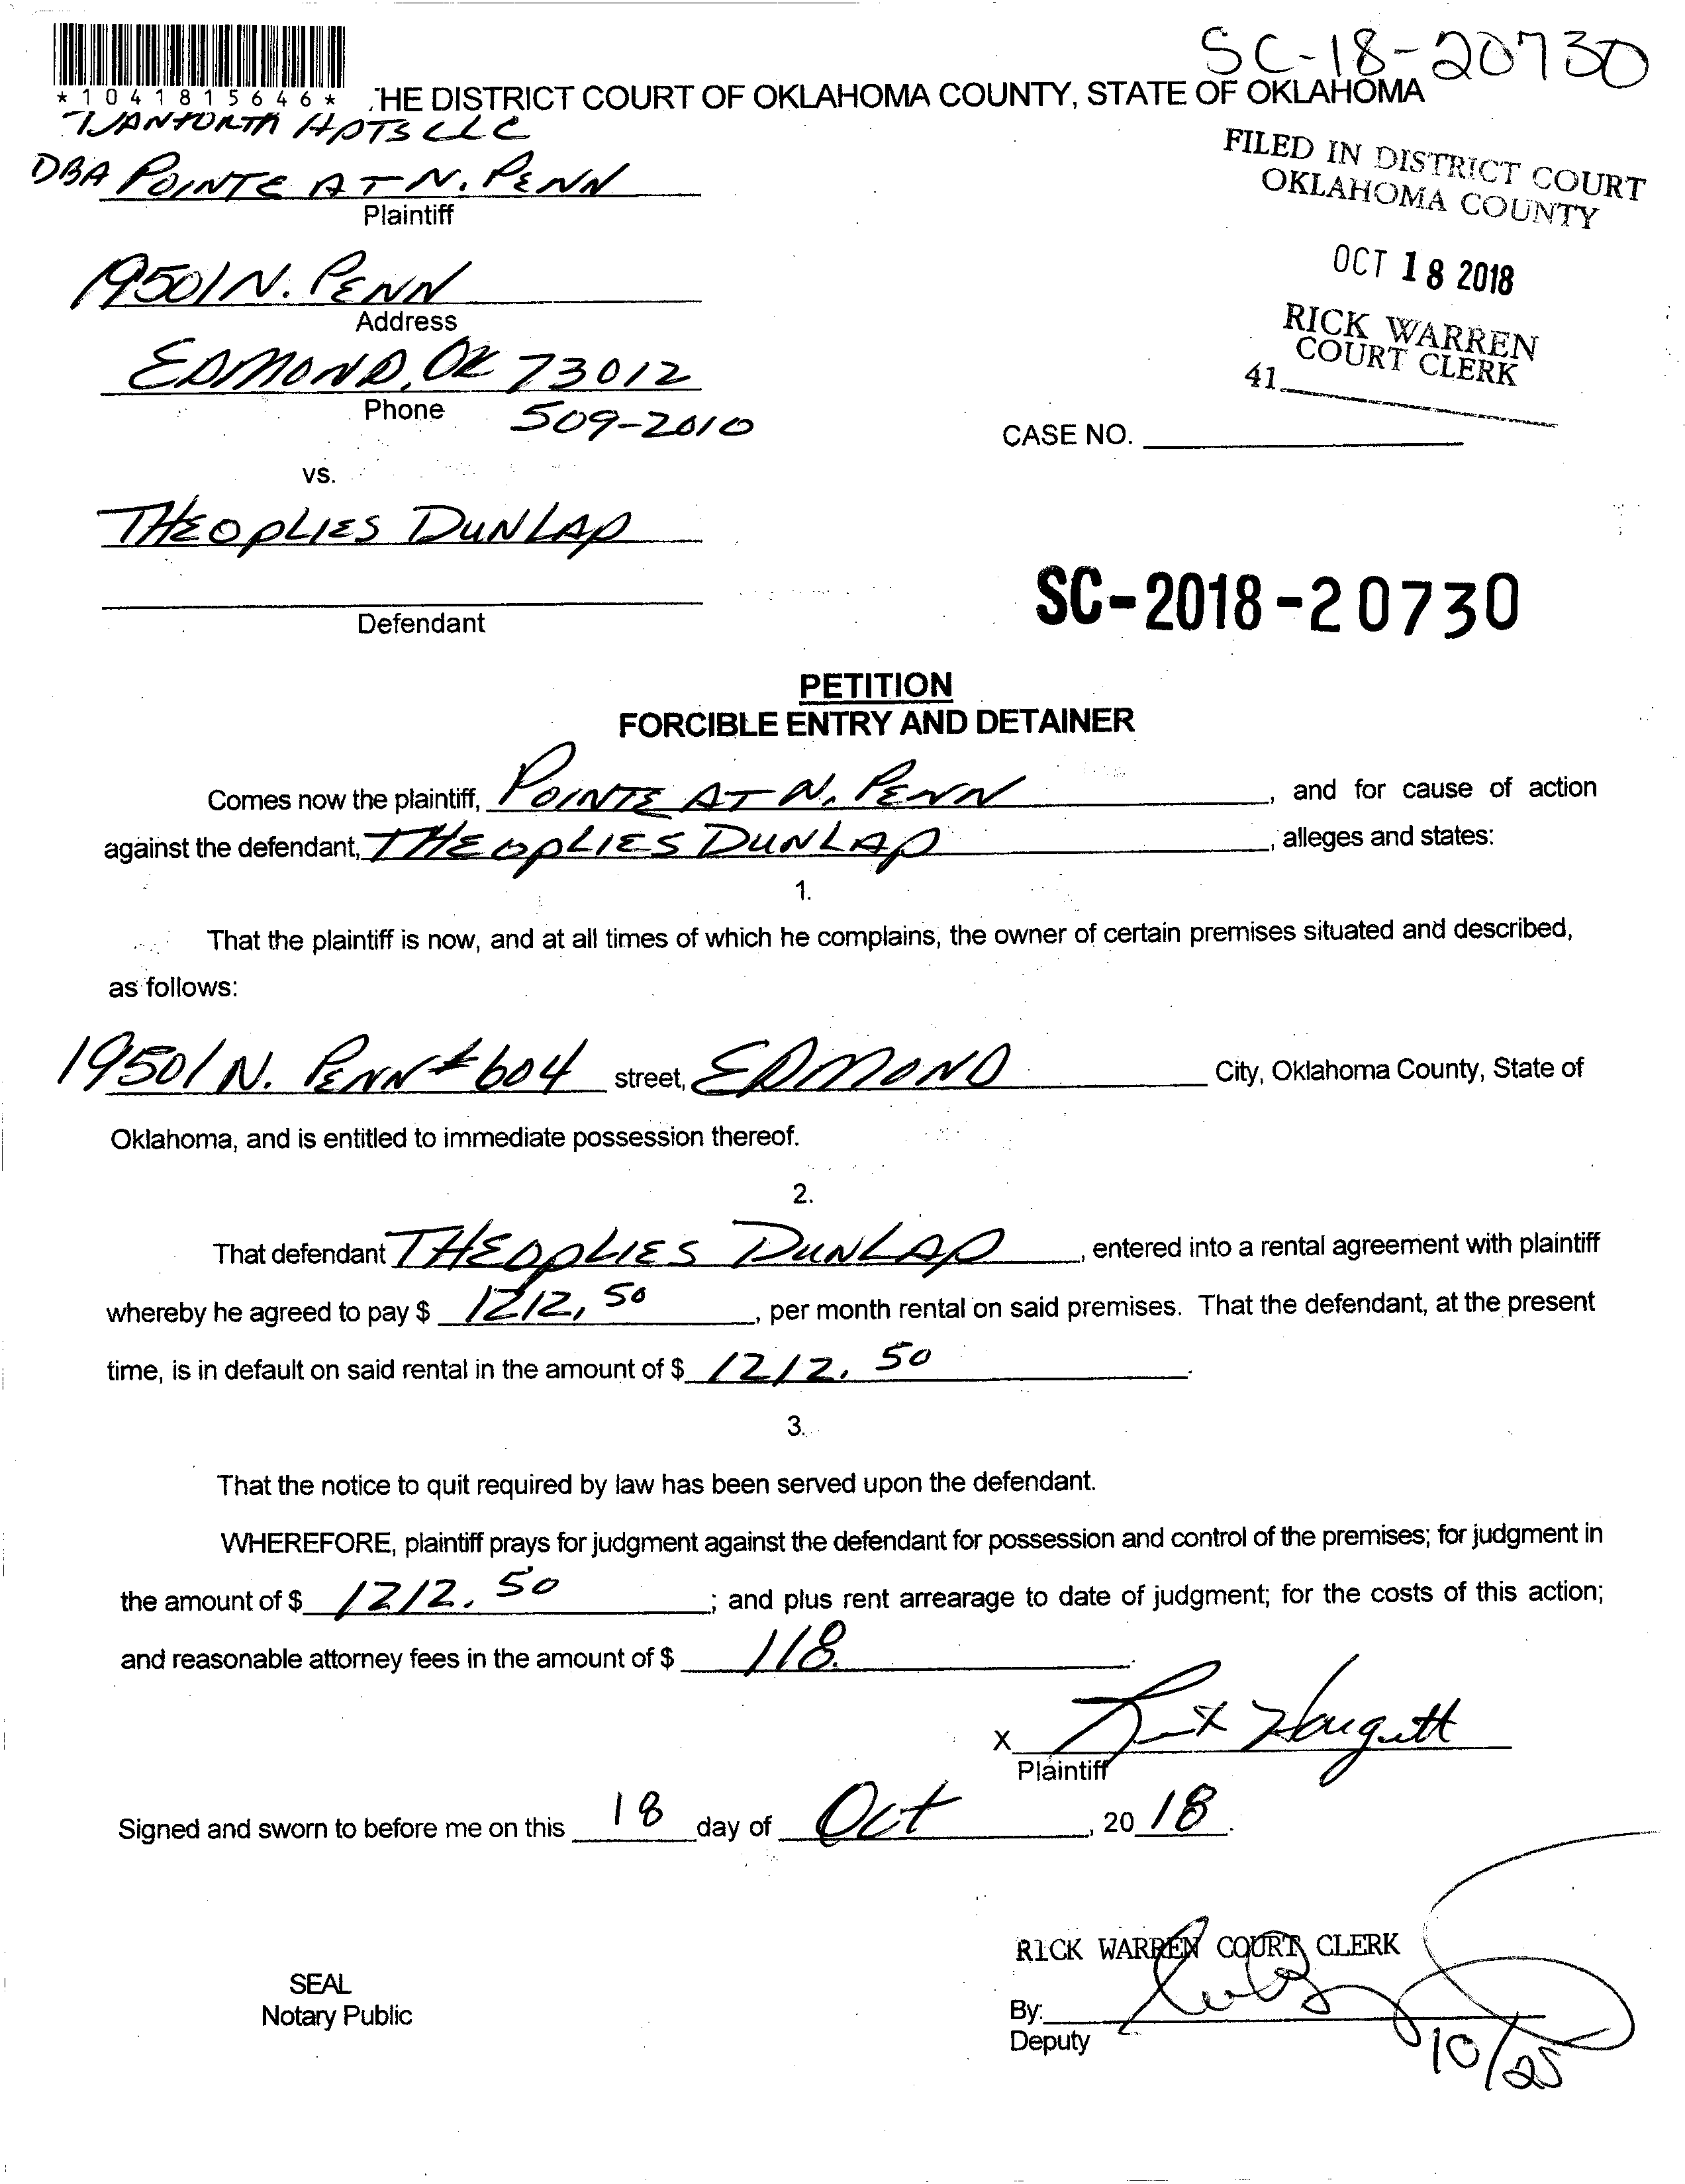 SC-18-20730
*1041815646* THE DISTRICT COURT OF OKLAHOMA COUNTY, STATE OF OKLAHOMA
APTS LLC
DBA POINTE AT N. PENN
Plaintiff
19501 N. PENN
Address
EDMOND, OK 73012
Phone 509-2010
vs.
THEOPLIES DUNLAP
Defendant
FILED IN DISTRICT COURT
OKLAHOMA COUNTY
OCT 18 2018
RICK WARREN
COURT CLERK
41
CASE NO.
SC-2018-20730
PETITION
FORCIBLE ENTRY AND DETAINER
Comes now the plaintiff, POINTE AT N. PENN, and for cause of action
against the defendant, THEOPLIES DUNLAP, alleges and states:
1.
That the plaintiff is now, and at all times of which he complains, the owner of certain premises situated and described,
as follows:
19501 N. PENN #604 street, EDMOND City, Oklahoma County, State of
Oklahoma, and is entitled to immediate possession thereof.
2.
That defendant THEOPLIES DUNLAP, entered into a rental agreement with plaintiff
whereby he agreed to pay $ 1212,50, per month rental on said premises. That the defendant, at the present
time, is in default on said rental in the amount of $ 1212.50.
3.
That the notice to quit required by law has been served upon the defendant.
WHEREFORE, plaintiff prays for judgment against the defendant for possession and control of the premises; for judgment in
the amount of $ 1212.50; and plus rent arrearage to date of judgment; for the costs of this action;
and reasonable attorney fees in the amount of $ 118.
X
Plaintiff
Signed and sworn to before me on this 18 day of Oct, 20 18.
RICK WARREN COURT CLERK
SEAL
Notary Public
By:
Deputy
10/25